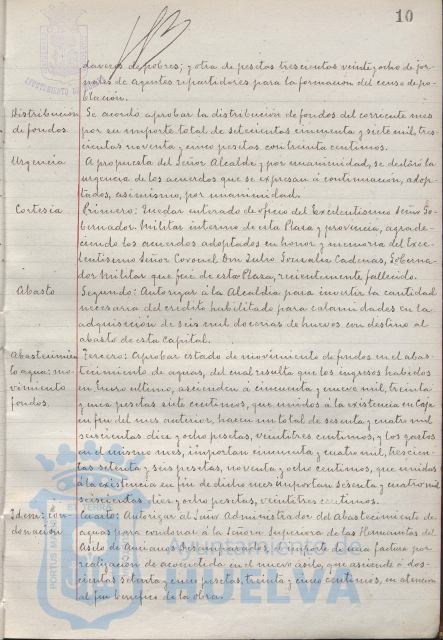 10
daveres de pobres; y otra de pesetas trescientas veinte y ocho de jor-
nales de agentes repartidores para la formación del censo de po-
blación.
Distribución de fondos.
Se acordó aprobar la distribución de fondos del corriente mes
por su importe total de setecientas cincuenta y siete mil, tres-
cientas noventa y cinco pesetas con treinta centimos.
Urgencia
A propuesta del Señor Alcalde y por unanimidad, se declaró la
urgencia de los acuerdos que se expresan á continuación, adop-
tados, asimismo, por unanimidad.
Cortesía
Primero: Quedar enterado de oficio del Excelentisimo Señor Go-
bernador Militar interino de esta Plaza y provincia, agrade-
ciendo los acuerdos adoptados en honor y memoria del Exce-
lentisimo Señor Coronel Don Julio Gonzalez Cadenas, Goberna-
dor Militar que fué de esta Plaza, recientemente fallecido.
Abasto
Segundo: Autorizar á la Alcaldia para invertir la cantidad
necesaria del credito habilitado para calamidades en la
adquisición de seis mil docenas de huevos con destino al
abasto de esta Capital.
Abastecimien
to agua: mo-
vimiento
fondos.
Tercero: Aprobar estado de movimiento de fondos en el abas-
tecimiento de aguas, del cual resulta que los ingresos habidos
en Enero ultimo, ascienden á cincuenta y nueve mil, treinta
y una pesetas siete centimos, que unidos á la existencia en Caja
en fin del mes anterior, hacen un total de sesenta y cuatro mil
seiscientas diez y ocho pesetas, veintitres centimos, y los gastos
en el mismo mes, importan cincuenta y cuatro mil, trescien-
tas setenta y seis pesetas, noventa y ocho centimos, que unidos
á la existencia en fin de dicho mes importan sesenta y cuatro mil
seiscientas diez y ocho pesetas, veintitres centimos.
Idem: con-
donación
Cuarto: Autorizar al Señor Administrador del Abastecimiento de
aguas para condonar á la Señora Superiora de las Hermanitas del
Asilo de Ancianos Desamparados, el importe de una factura por
realización de acometida en el nuevo asilo, que asciende á dos-
cientas setenta y cinco pesetas, treinta y cinco centimos, en atención
al fin benefico de la obra.
PORTUS MARIS
Ayuntamiento de
HUELVA